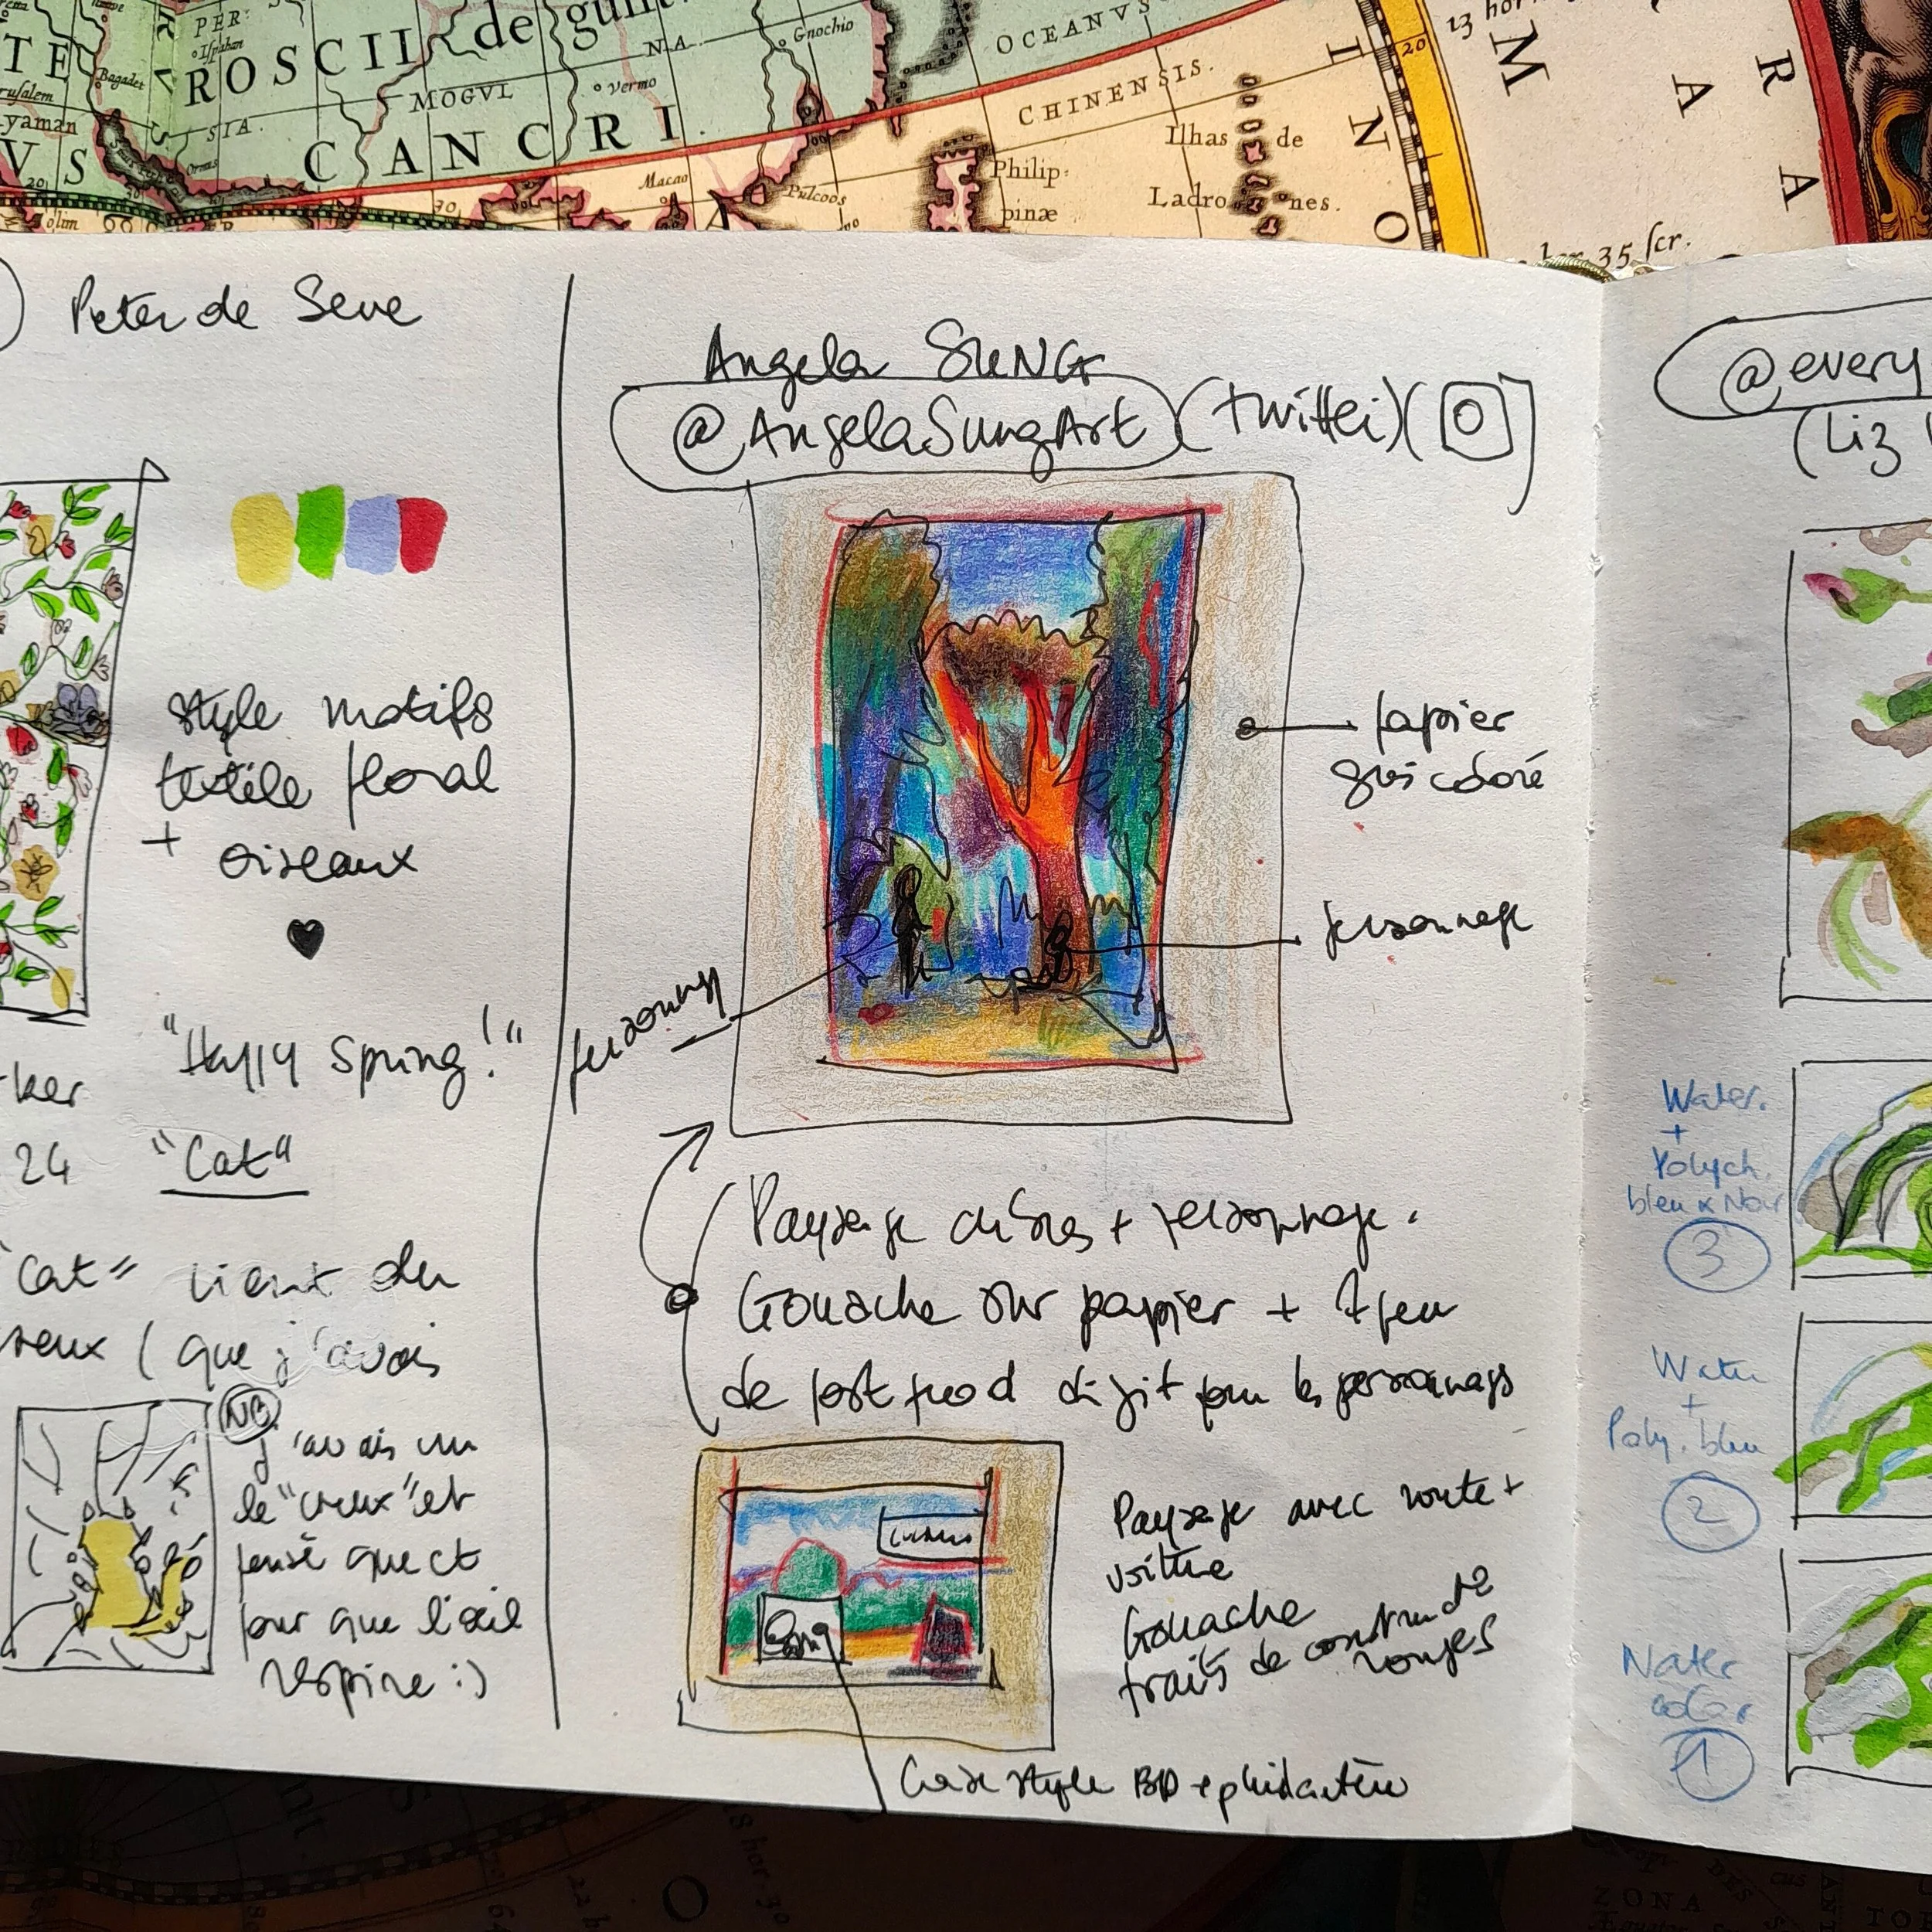 PER:
Ispahan
TE
ROSCII de gunt
NA
Gnochio
OCEANVS
20
13 hor
M
A
R
A
Bagadet
rusalem
MOGVL
Vermo
CHINENSIS.
yaman
SIA.
CANCRI.
Ilhas de
Ladrones.
Philip:
pinæ
I
N
O
VS
Ormus
Macao
Pulcoos
20
30
35 scr.
Peter de Seve
style motifs
textile floral
+ oiseaux
"Happy Spring!"
ker
24 "Cat"
"Cat" vient du
reux (que j'avais
NB
j'avais vu
le "creux" et
pensé que ct
pour que l'œil
respire :)
Angela SUNG
@AngelaSungArt (twitter)
papier
gris coloré
personnage
personnage
Paysage arbres + personnage.
Gouache sur papier + 1 peu
de post prod digit pour les personnages
Paysage avec route +
voiture
Gouache
traits de construct°
rouges
Case style BD + phylactère
@every
(Liz
Water.
+
Polych.
bleu x Noir
3
Water
+
Poly. bleu
2
Water
color
1
ZONA